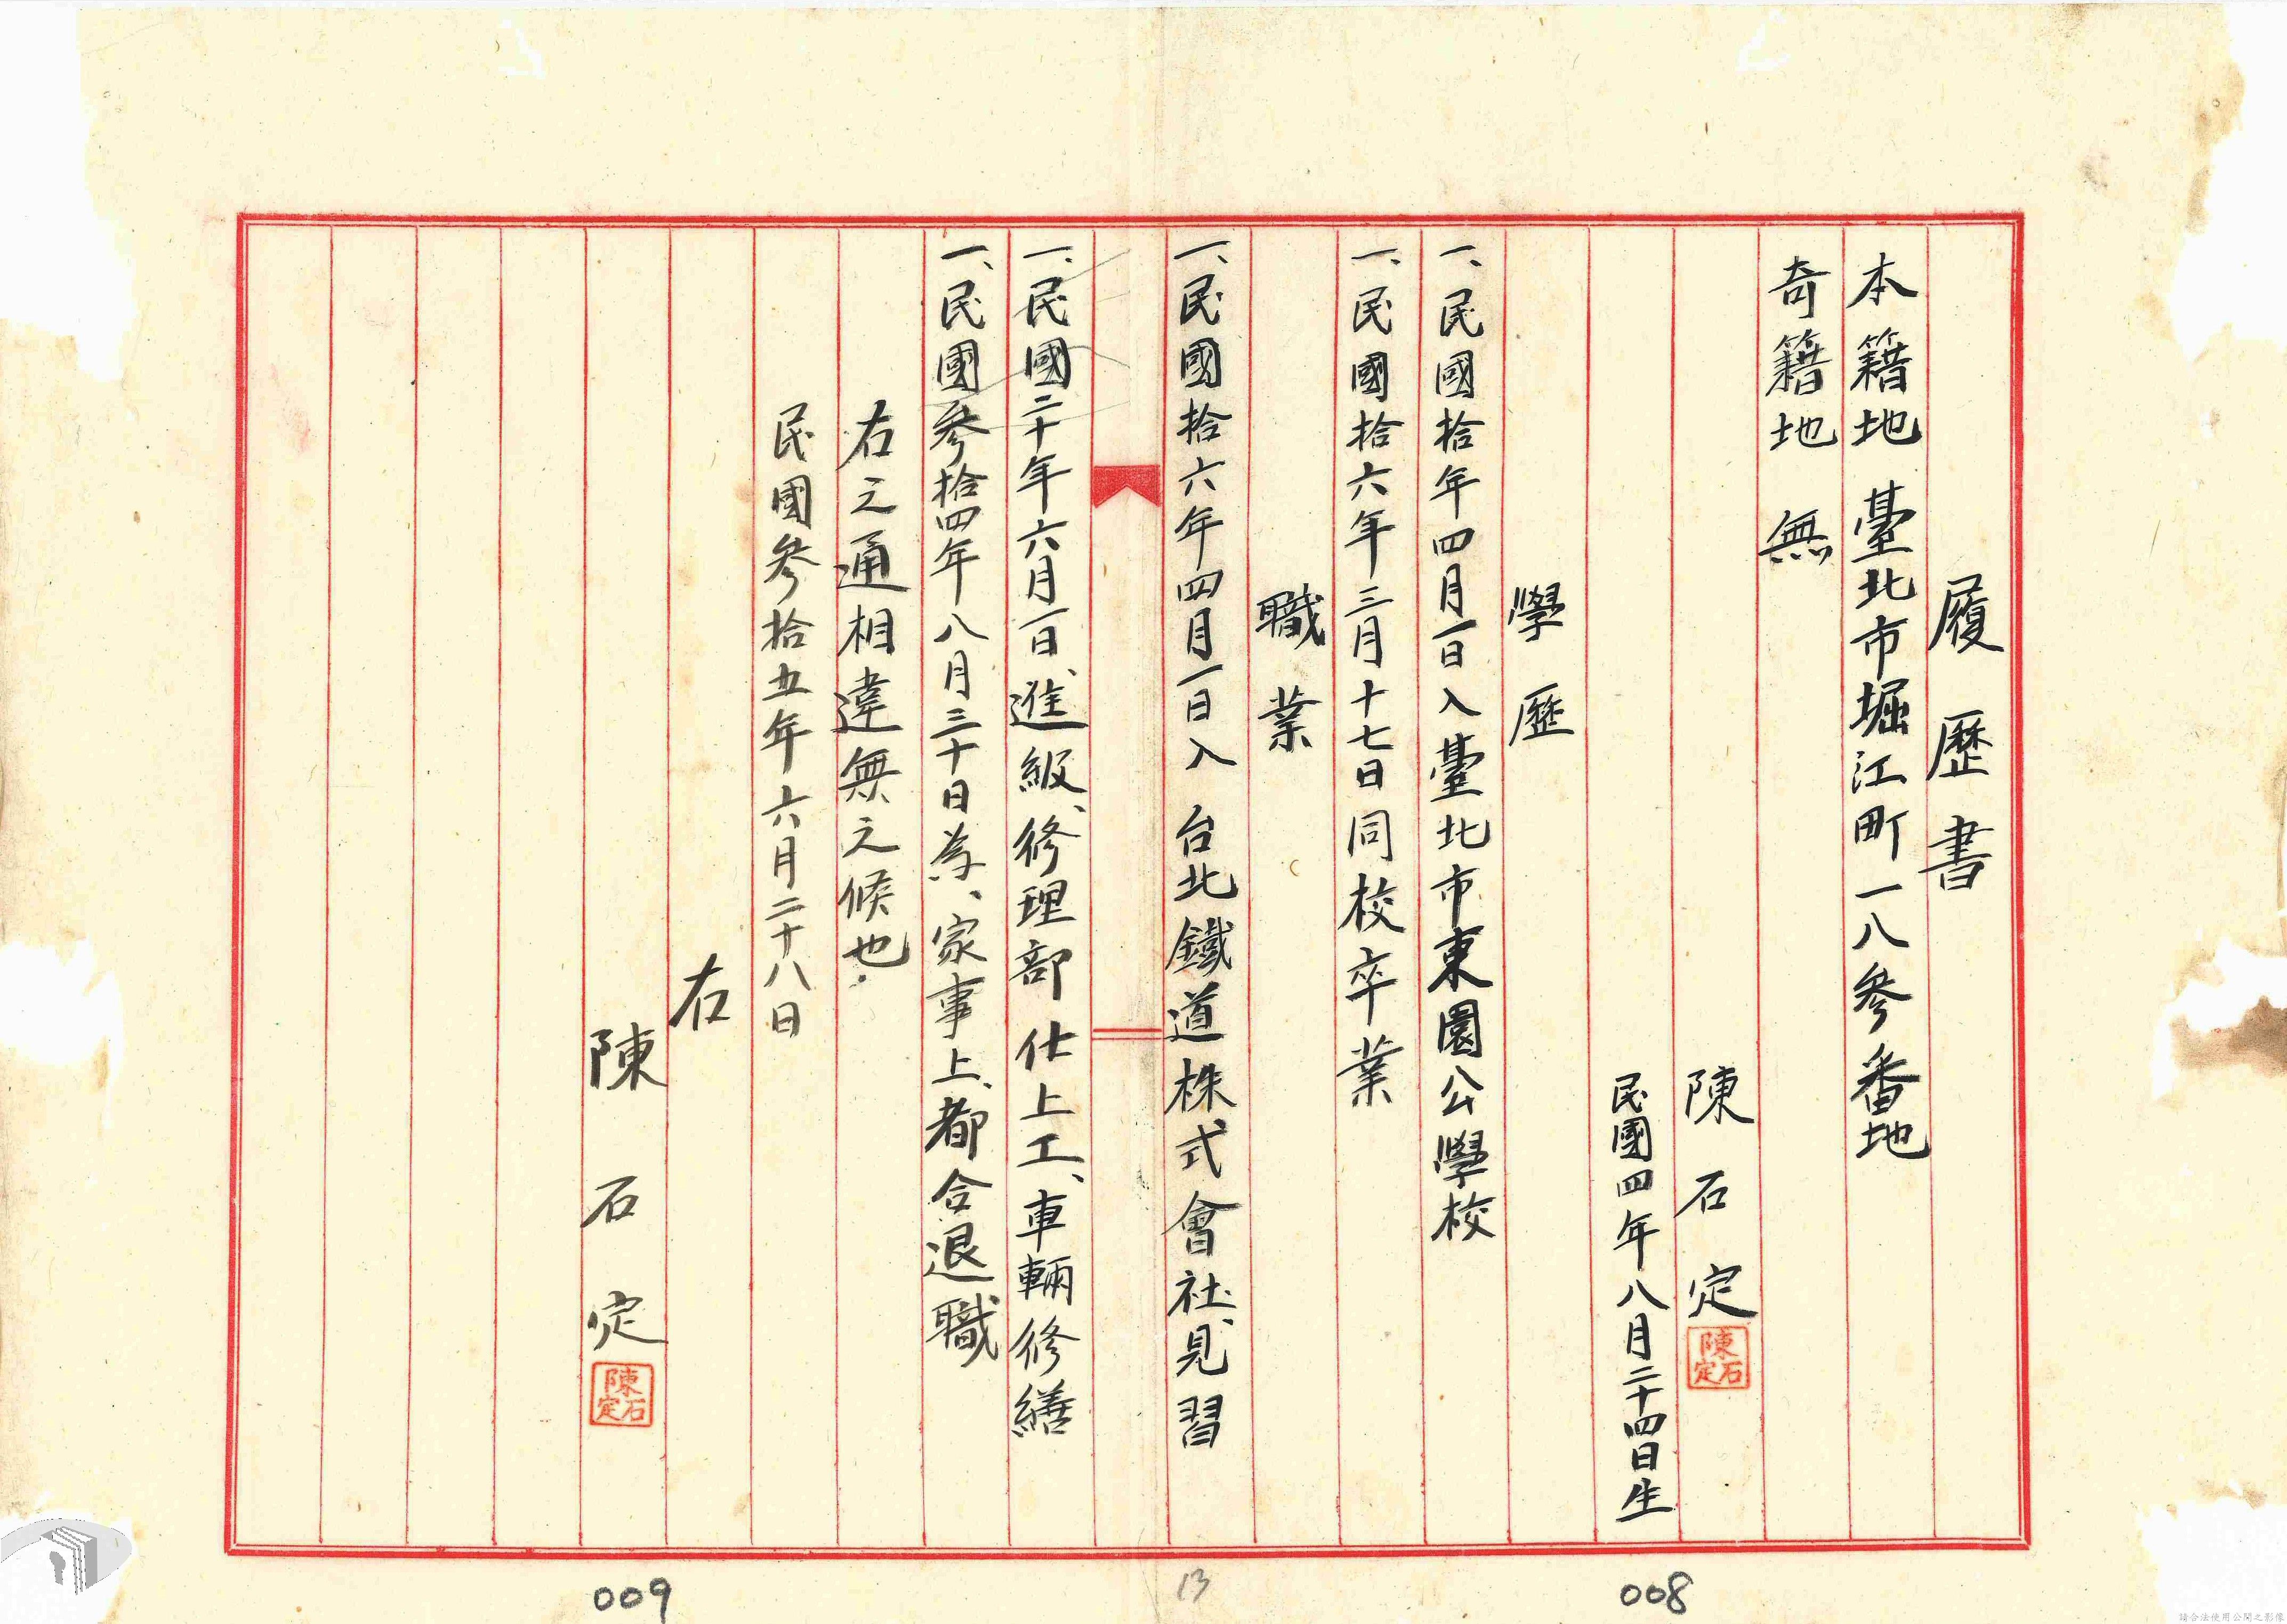 履歷書
本籍地 臺北市堀江町一八參番地
奇籍地 無
陳石定
陳石定
民國四年八月二十四日生
學歷
一、民國拾年四月一日入臺北市東園公學校
一、民國拾六年三月十七日同校卒業
職業
一、民國拾六年四月一日入 台北鐵道株式會社、見習
一、民國二十年六月一日、進級、修理部 仕上工、車輛修繕
一、民國參拾四年八月三十日為、家事上、都合退職
右之通相違無之候也.
民國參拾五年六月二十八日
右
陳石定
陳石定
008
13
009
請合法使用公開之影像